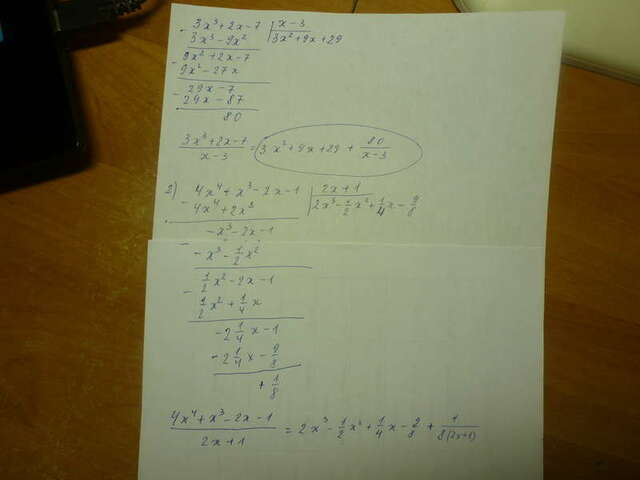 - 3x³+2x-7 | x-3
3x³-9x² 3x²+9x+29
- 9x²+2x-7
9x²-27x
- 29x-7
29x-87
80
(3x³+2x-7)/(x-3) = 3x²+9x+29+80/(x-3)
2) - 4x⁴+x³-2x-1 | 2x+1
4x⁴+2x³ 2x³-1/2x²+1/4x-9/8
- -x³-2x-1
-x³-1/2x²
- 1/2x²-2x-1
1/2x²+1/4x
-2 1/4x-1
-2 1/4x-9/8
+1/8
(4x⁴+x³-2x-1)/(2x+1) = 2x³-1/2x²+1/4x-9/8+1/(8(2x+1))